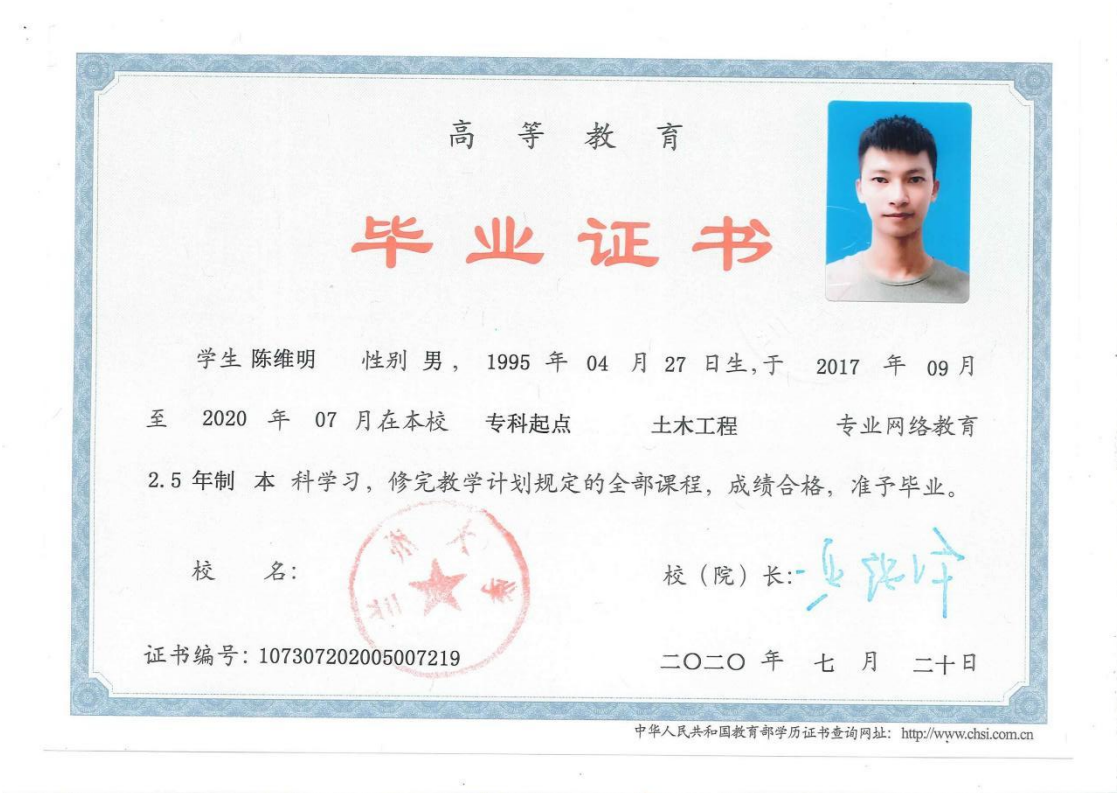 高等教育
毕业证书
学生 陈维明 性别 男，1995 年 04 月 27 日生，于 2017 年 09 月
至 2020 年 07 月在本校 专科起点 土木工程 专业网络教育
2.5 年制 本 科学习，修完教学计划规定的全部课程，成绩合格，准予毕业。
校 名： 校（院）长：
证书编号：107307202005007219 二〇二〇 年 七 月 二十日
中华人民共和国教育部学历证书查询网址：http://www.chsi.com.cn